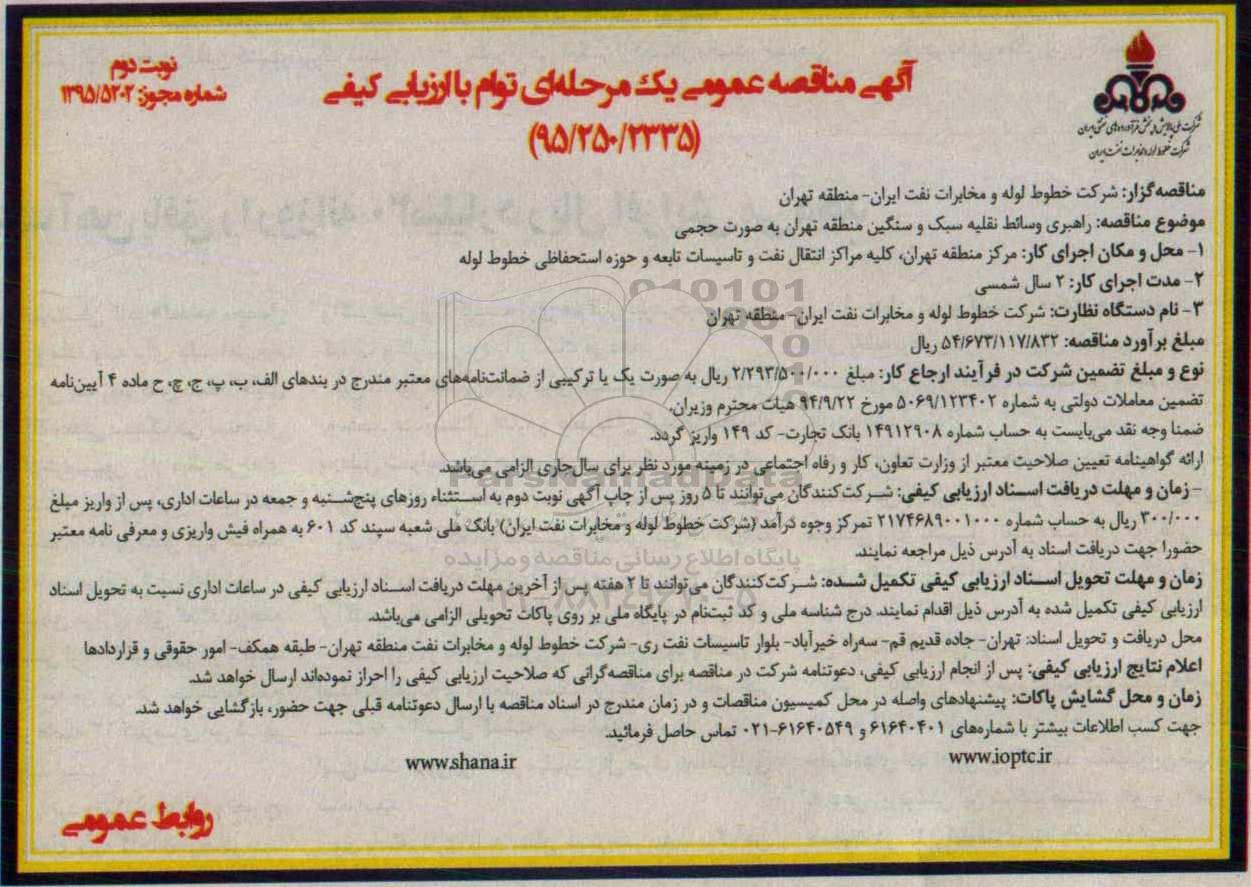 نوبت دوم
شماره مجوز: ۱۳۹۵/۵۲۰۲
آگهی مناقصه عمومی یک مرحله‌ای توام با ارزیابی کیفی
(۹۵/۲۵۰/۲۳۳۵)
شرکت ملی پالایش و پخش فرآورده‌های نفتی ایران
شرکت خطوط لوله و مخابرات نفت ایران
مناقصه‌گزار: شرکت خطوط لوله و مخابرات نفت ایران- منطقه تهران
موضوع مناقصه: راهبری وسائط نقلیه سبک و سنگین منطقه تهران به صورت حجمی
۱- محل و مکان اجرای کار: مرکز منطقه تهران، کلیه مراکز انتقال نفت و تاسیسات تابعه و حوزه استحفاظی خطوط لوله
۲- مدت اجرای کار: ۲ سال شمسی
۳- نام دستگاه نظارت: شرکت خطوط لوله و مخابرات نفت ایران- منطقه تهران
مبلغ برآورد مناقصه: ۵۴/۶۷۳/۱۱۷/۸۳۲ ریال
نوع و مبلغ تضمین شرکت در فرآیند ارجاع کار: مبلغ ۲/۲۹۳/۵۰۰/۰۰۰ ریال به صورت یک یا ترکیبی از ضمانت‌نامه‌های معتبر مندرج در بندهای الف، ب، پ، ج، چ، ح ماده ۴ آیین‌نامه
تضمین معاملات دولتی به شماره ۵۰۶۹/۱۲۳۴۰۲ مورخ ۹۴/۹/۲۲ هیات محترم وزیران.
ضمنا وجه نقد می‌بایست به حساب شماره ۱۴۹۱۲۹۰۸ بانک تجارت- کد ۱۴۹ واریز گردد.
ارائه گواهینامه تعیین صلاحیت معتبر از وزارت تعاون، کار و رفاه اجتماعی در زمینه مورد نظر برای سال‌جاری الزامی می‌باشد.
- زمان و مهلت دریافت اسـناد ارزیابی کیفی: شـرکت‌کنندگان می‌توانند تا ۵ روز پس از چاپ آگهی نوبت دوم به اسـتثناء روزهای پنج‌شـنبه و جمعه در ساعات اداری، پس از واریز مبلغ
۳۰۰/۰۰۰ ریال به حساب شماره ۲۱۷۴۶۸۹۰۰۱۰۰۰ تمرکز وجوه درآمد (شرکت خطوط لوله و مخابرات نفت ایران) بانک ملی شعبه سپند کد ۶۰۱ به همراه فیش واریزی و معرفی نامه معتبر
حضورا جهت دریافت اسناد به آدرس ذیل مراجعه نمایند.
زمان و مهلت تحویل اسـناد ارزیابی کیفی تکمیل شـده: شـرکت‌کنندگان می‌توانند تا ۲ هفته پس از آخرین مهلت دریافت اسـناد ارزیابی کیفی در ساعات اداری نسبت به تحویل اسناد
ارزیابی کیفی تکمیل شده به آدرس ذیل اقدام نمایند. درج شناسه ملی و کد ثبت‌نام در پایگاه ملی بر روی پاکات تحویلی الزامی می‌باشد.
محل دریافت و تحویل اسناد: تهران- جاده قدیم قم- سه‌راه خیرآباد- بلوار تاسیسات نفت ری- شرکت خطوط لوله و مخابرات نفت منطقه تهران- طبقه همکف- امور حقوقی و قراردادها
اعلام نتایج ارزیابی کیفی: پس از انجام ارزیابی کیفی، دعوتنامه شرکت در مناقصه برای مناقصه‌گرانی که صلاحیت ارزیابی کیفی را احراز نموده‌اند ارسال خواهد شد.
زمان و محل گشایش پاکات: پیشنهادهای واصله در محل کمیسیون مناقصات و در زمان مندرج در اسناد مناقصه با ارسال دعوتنامه قبلی جهت حضور، بازگشایی خواهد شد.
جهت کسب اطلاعات بیشتر با شماره‌های ۶۱۶۴۰۴۰۱ و ۶۱۶۴۰۵۴۹-۰۲۱ تماس حاصل فرمائید.
www.ioptc.ir
www.shana.ir
روابط عمومی
ParsNamadData
پایگاه اطلاع رسانی مناقصه و مزایده